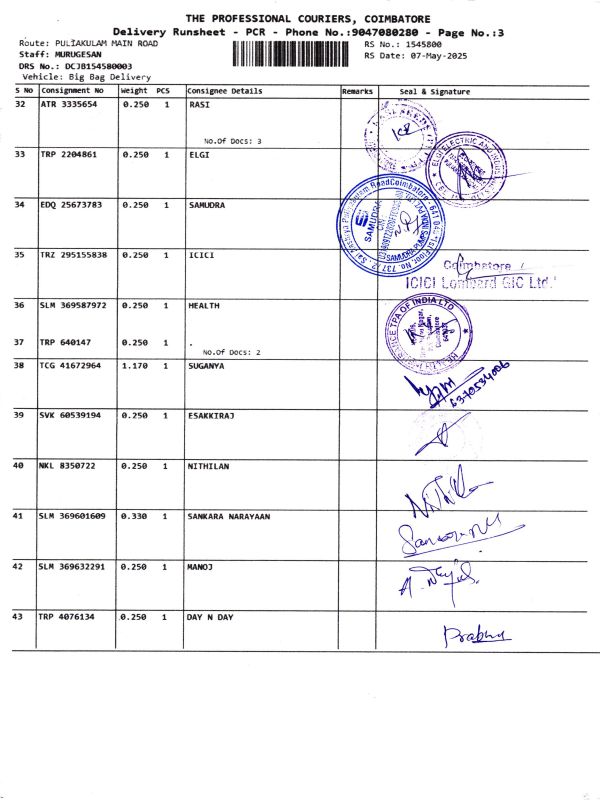 THE PROFESSIONAL COURIERS, COIMBATORE
Delivery Runsheet - PCR - Phone No.:9047080280 - Page No.:3
Route: PULIAKULAM MAIN ROAD
RS No.: 1545800
Staff: MURUGESAN
RS Date: 07-May-2025
DRS No.: DCJB154580003
Vehicle: Big Bag Delivery
S No Consignment No Weight PCS Consignee Details Remarks Seal & Signature
32 ATR 3335654 0.250 1 RASI
No.Of Docs: 3
33 TRP 2204861 0.250 1 ELGI
ELGI ELECTRIC AND INDUST
34 EDQ 25673783 0.250 1 SAMUDRA
SAMUDRA
35 TRZ 295155838 0.250 1 ICICI
Coimbatore
ICICI Lombard GIC Ltd.
36 SLM 369587972 0.250 1 HEALTH
SERVICE TPA OF INDIA LTD
37 TRP 640147 0.250 1 .
No.Of Docs: 2
38 TCG 41672964 1.170 1 SUGANYA
6370534006
39 SVK 60539194 0.250 1 ESAKKIRAJ
40 NKL 8350722 0.250 1 NITHILAN
41 SLM 369601609 0.330 1 SANKARA NARAYAAN
42 SLM 369632291 0.250 1 MANOJ
43 TRP 4076134 0.250 1 DAY N DAY
Prabhu